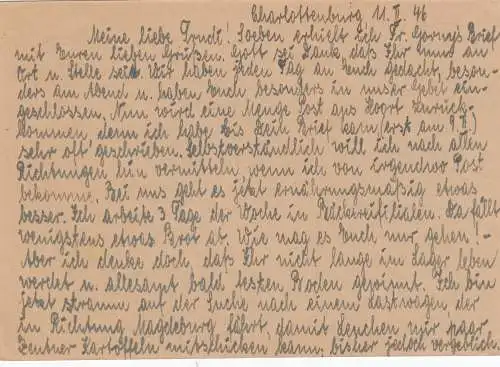 Charlottenburg 11. II. 46
Meine liebe Trudi! Soeben erhielt ich Fr. Brief
mit Euren lieben Grüßen. Gott sei Dank daß Ihr nun an
Ort u. Stelle seid. Wir haben jeden Tag an Euch gedacht, beson-
ders am Abend u. haben Euch besonders in unser Gebet ein-
geschlossen. Nun wird eine Menge Post aus zurück-
kommen denn ich habe bis Dein Brief kam (erst am 9. II.)
sehr oft geschrieben. Selbstverständlich will ich nach allen
Richtungen hin vermitteln wenn ich von irgendwo Post
bekomme. Bei uns geht es jetzt ernährungsmäßig etwas
besser. Ich arbeite 3 Tage der Woche in Bäckereifilialen. Da fällt
wenigstens etwas Brot ab. Wie mag es Euch nur gehen!
Aber ich denke doch daß Ihr nicht lange im Lager leben
werdet u. allesamt bald festen Boden gewinnt. Ich bin
jetzt stramm auf der Suche nach einem Lastwagen der
in Richtung Magdeburg fährt, damit Lenchen mir paar
Zentner Kartoffeln mitschicken kann, bisher jedoch vergeblich.